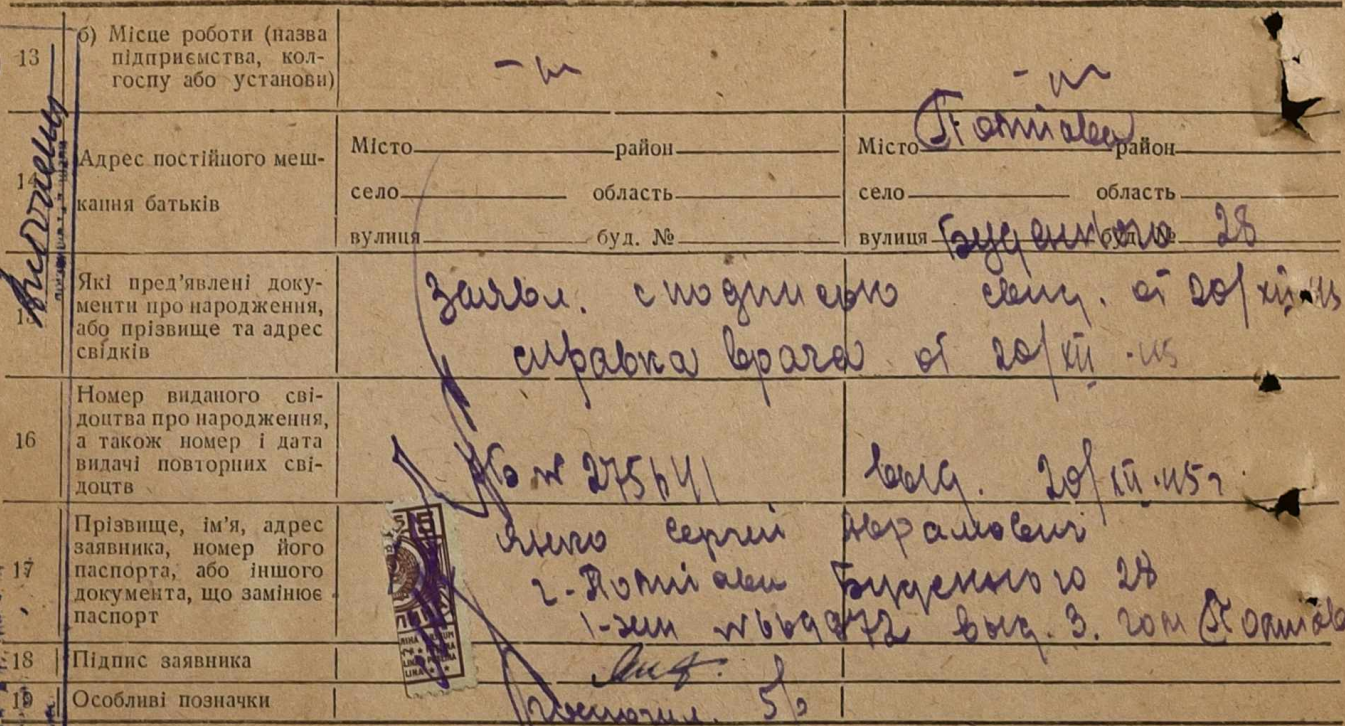 13 б) Місце роботи (назва
підприємства, кол-
госпу або установи)
14 Адрес постійного меш-
кання батьків
Місто район Місто Полтава район
село область село область
вулиця буд. № вулиця Буденного буд. № 28
15 Які пред’явлені доку-
менти про народження,
або прізвище та адрес
свідків
Заявл. с подписью свид. от 20/XII-45
справка врача от 20/XII-45
16 Номер виданого сві-
доцтва про народження,
а також номер і дата
видачі повторних сві-
доцтв
№ выд. 20/XII-45г
17 Прізвище, ім’я, адрес
заявника, номер його
паспорта, або іншого
документа, що замінює
паспорт
Янко Сергей Аврамович
г. Полтава Буденного 28
выд. 3. гом Полтава
18 Підпис заявника
19 Особливі позначки